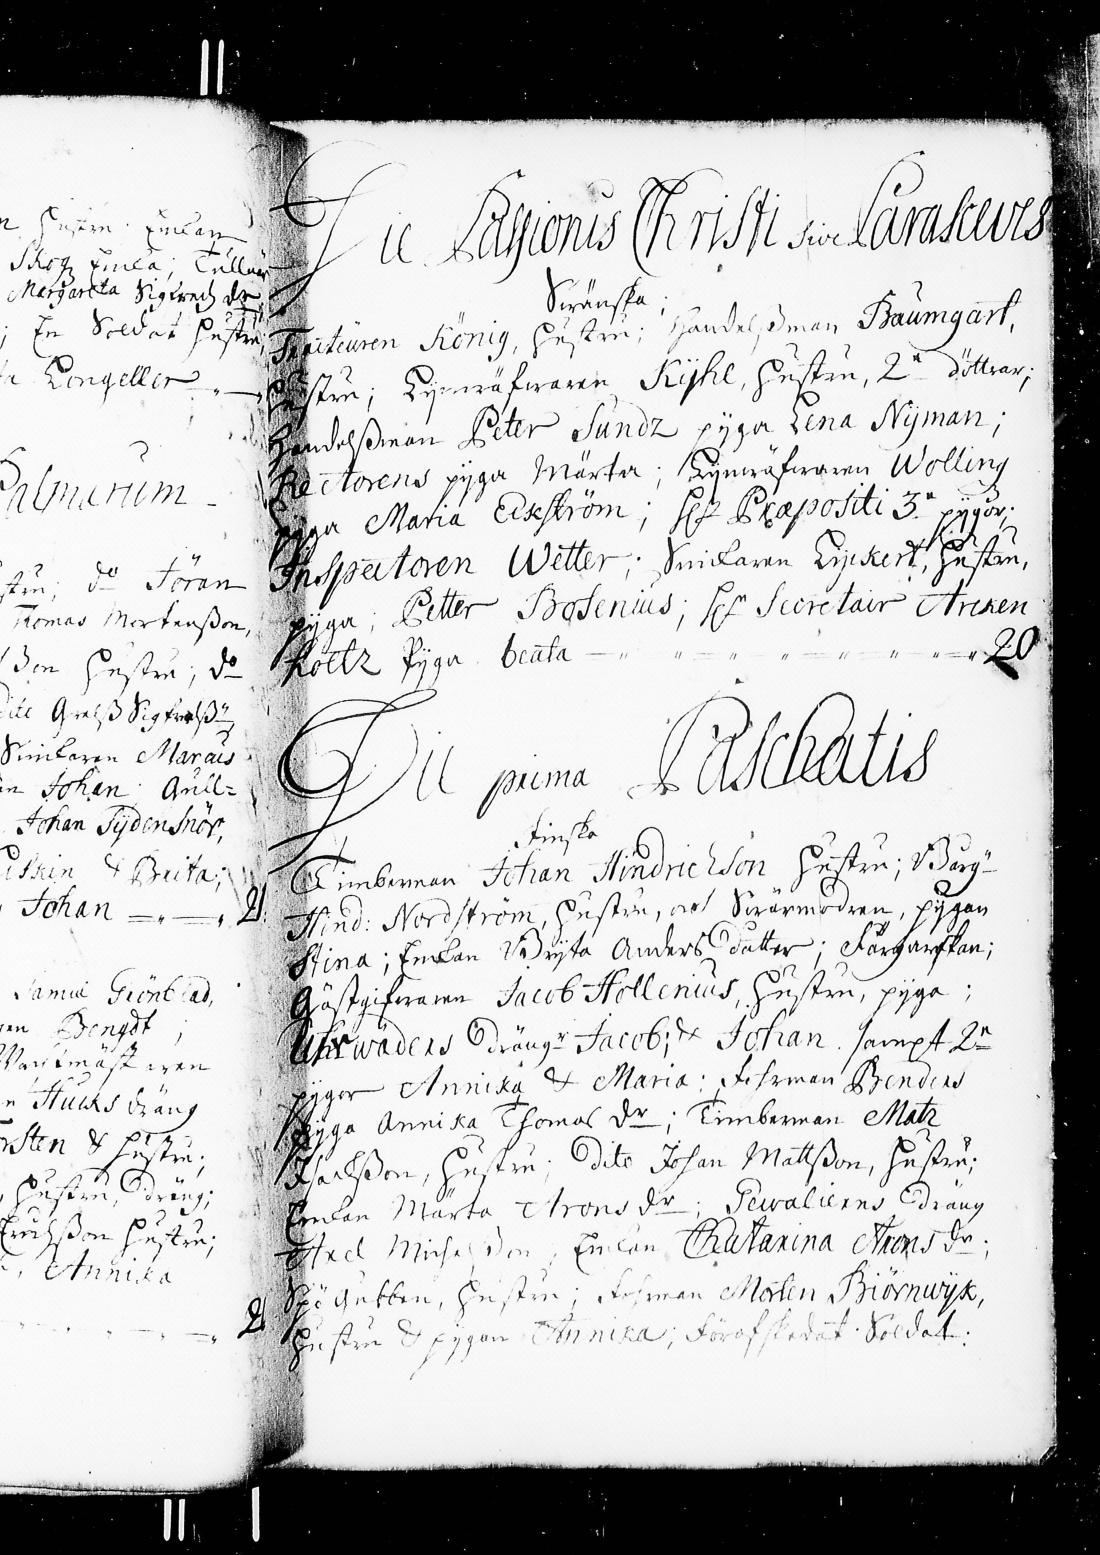 n Hustru Enckan
Skog Encka; Tullnär
Margareta Sigfredz dr
; En Soldat Hustru,
ta Longeller
Palmarum
stru; do Jöran
Thomas Mortenßon,
ßon Hustru; do
dite Grelß Sigfredß
Snickaren Marcus
Johan Gull=
Johan Tydensnör,
& Brita;
Johan 2
Samuel Grönblad,
Bengdt ;
Wacktmästaren
n Hucks dräng
rsten & Hustru;
, Hustru, dräng;
Erichßon Hustru;
, Annika
2
Die Passionis Christi sive Parasceves
Swänska ;
Tracteuren König, Hustru; Handelßman Baumgart,
Hustru; Lymräfwaren Kyhl, Hustru, 2n döttrar;
Handelßman Peter Sundz pyga Lena Nyman;
Rectorens pyga Märta; Lymräfwaren Wolling
pyga Maria Ekström; Præpositi 3n pygor;
Inspectoren Wetter; Snickaren Lyckert, Hustru,
pyga; Petter Bosenius; Secretair Arcken
holtz Pyga beata 20
Die prima Paschatis
Finska
Timberman Johan Hindrichson Hustru; Borg
Hind: Nordström, Hustru, och Swärmodren, pygan
Stina; Enckan Bryta Anders Dotter; Färgarskan;
Gästgifwaren Jacob Hollenius, Hustru, pyga;
Uhrwäders Drängr Jacob; & Johan sampt 2n
pygor Annika & Maria: Fohrman Benders
Pyga Annika Thomas dr; Timberman Matz
Karlßon, Hustru; Dito Johan Mattßon, Hustru;
Enckan Märta Arons dr; Dräng
Axel Michelßon; Enckan Chatarina Arons dr;
Spö Gubben, Hustru; Fohrman Morten Biörnwyk,
Hustru & pygan Annika; Förafskedat Soldat.